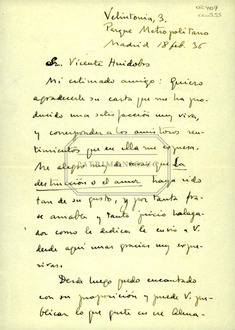 02409
Velintonia, 3,
Parque Metropolitano
Madrid 18 feb. 36
Sr. Vicente Huidobro
Mi estimado amigo: Quiero
agradecerle su carta que me ha pro-
ducido una satisfacción muy viva,
y corresponder a los amistosos sen-
timientos que en ella me expresa.
Me alegro muy de veras que La
destrucción o el amor haya sido
tan de su gusto, y por tanta fra-
se amable y tanto juicio halaga-
dor como le dedica le envío a V.
desde aquí unas gracias muy expre-
sivas.
Desde luego quedo encantado
con su proposición y puede V. pu-
blicar lo que guste en ese Alma-